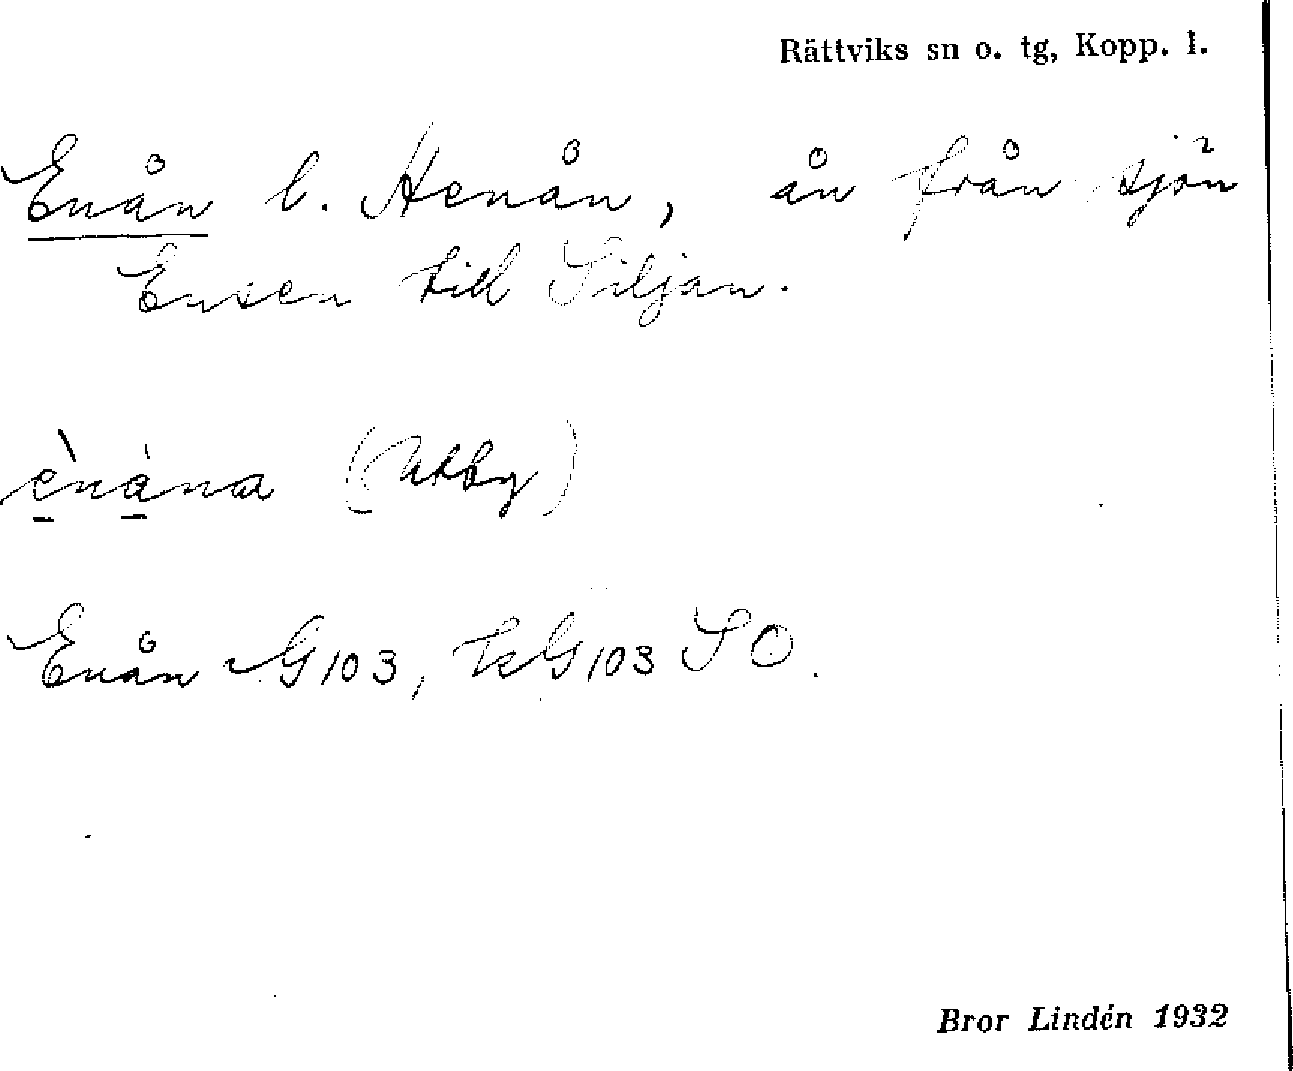 Rättviks sn o. tg, Kopp. l.
Enån l. Henån, ån från sjön
Ensen till Siljan.
ènána (Utby)
Enån G103, EkG103 SO.
Bror Lindén 1932